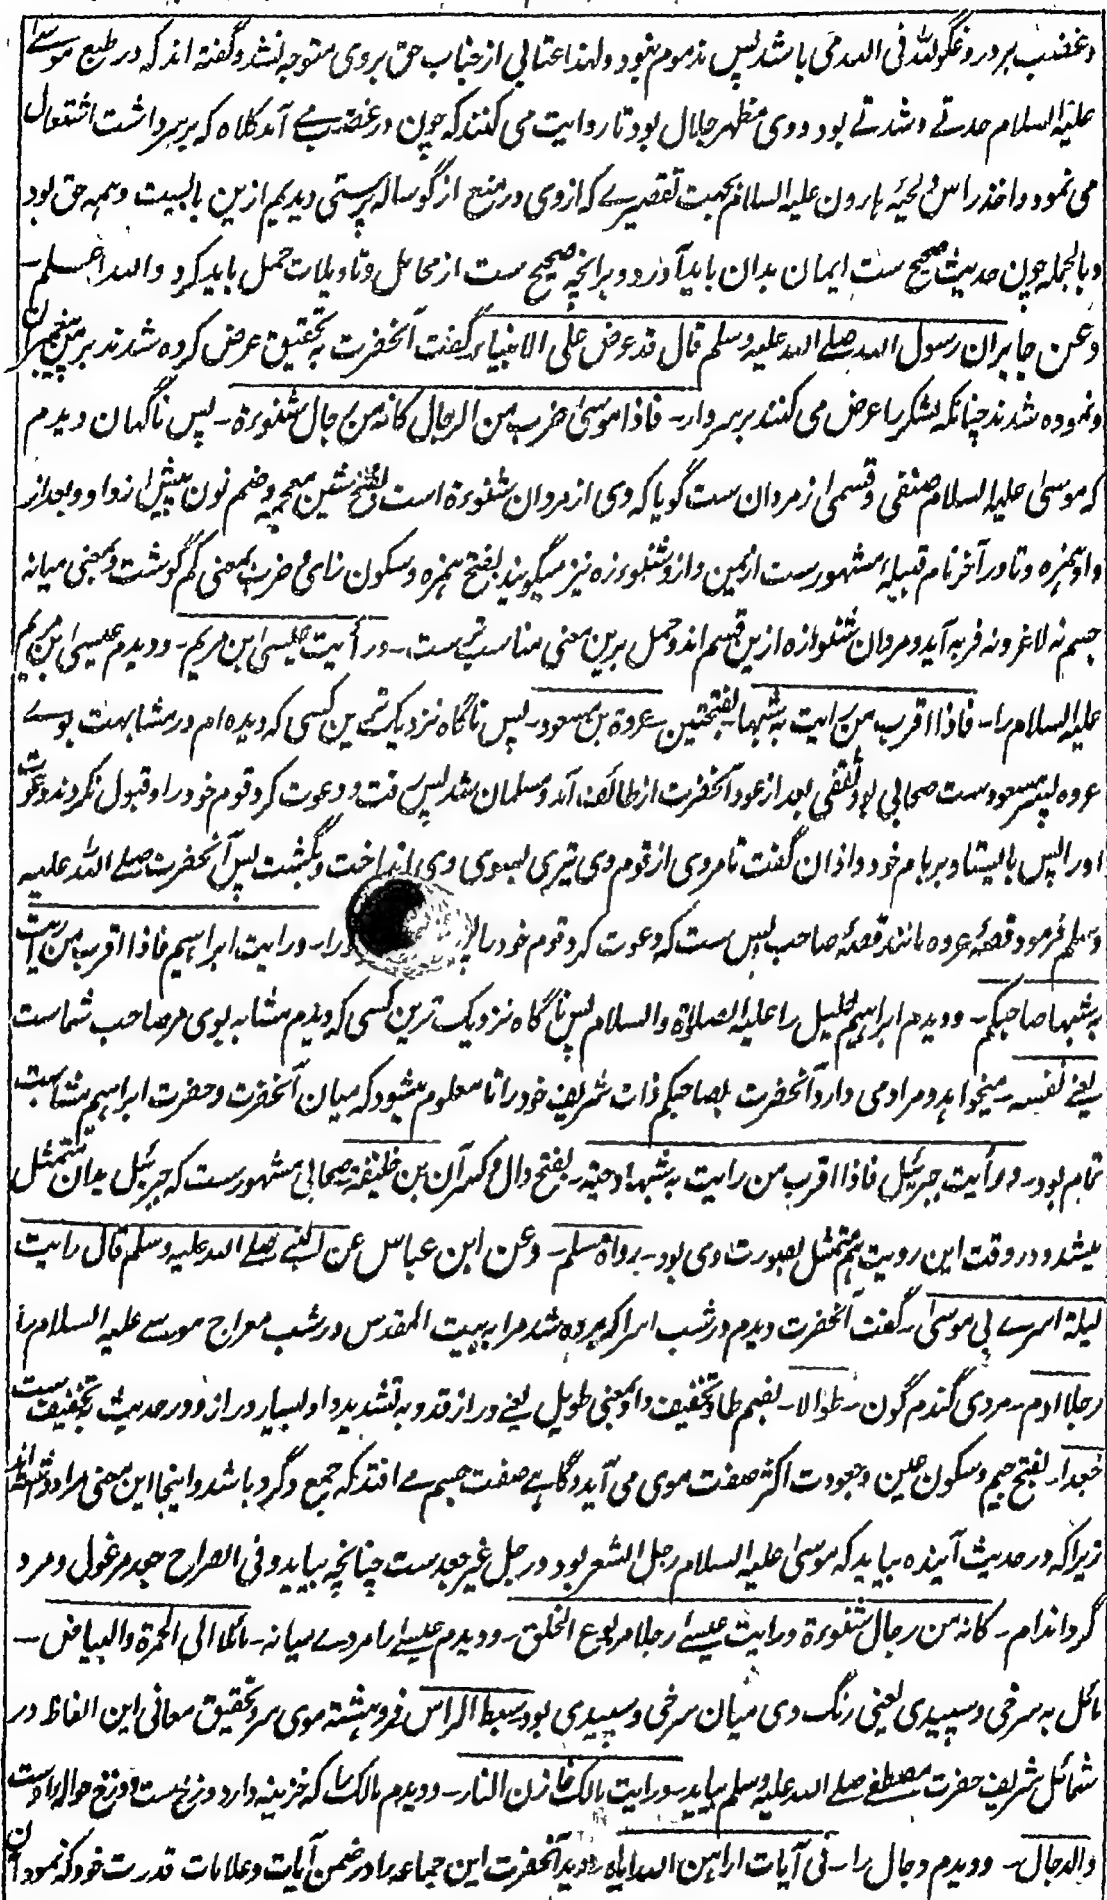 و غضب بر دروغگو لله فی الله می باشد پس مذموم نبود و لهذا عتابی از جناب حق بر وی متوجه نشد و گفته اند که در طبع موسے
علیه السلام حدتے و شدتے بود و وی مظهر جلال بود تا روایت می کنند که چون در غضب مے آمد کلاه که بر سر داشت اشتعال
می نمود و اخذ راس و لحیهٔ هارون علیه السلام بجهت تقصیرے که از وی در منع از گوساله پرستی دید هم ازین بابست و همه حق بود
و بالجمله چون حدیث صحیح ست ایمان بدان باید آورد و بر آنچه صحیح ست از محامل و تاویلات حمل باید کرد و الله اعلم ـ
و عن جابر ان رسول الله صلے الله علیه وسلم قال قد عرض علی الانبیاء گفت آنحضرت به تحقیق عرض کرده شدند بر من پیغمبران
و نموده شدند چنانکه لشکر را عرض می کنند بر سردار ـ فاذا موسیٰ ضرب من الرجال کانه من رجال شنوءة ـ پس ناگهان دیدم
که موسیٰ علیه السلام صنفی و قسمی از مردان ست گویا که وی از مردان شنوءة است بفتح شین معجمه و ضم نون پیش از واو و بعد از
واو همزه و تا در آخر نام قبیله مشهورست از یمن و ازد شنوءه نیز میگویند بفتح همزه و سکون زای و ضرب بمعنی کم گوشت و بمعنی میانه
جسم نه لاغر و نه فربه آید و مردان شنوءه ازین قسم اند و حمل برین معنی مناسب ترست ـ و رأیت عیسی ابن مریم ـ و دیدم عیسی ابن مریم
علیه السلام را ـ فاذا اقرب من رایت به شبها بفتحتین ـ عروة بن مسعود ـ پس ناگاه نزدیک ترین کسی که دیده ام در مشابهت بوے
عروه پسر مسعودست صحابی بود ثقفی بعد از عود آنحضرت از طائف آمد و مسلمان شد پس رفت و دعوت کرد قوم خود را و قبول نکردند دعوت
او را پس بایستاد بر بام خود و اذان گفت تا مردی از قوم وی تیری بسوی وی انداخت و بکشت پس آنحضرت صلے الله علیه
وسلم فرمود قصهٔ عروه مانند قصهٔ صاحب یس ست که دعوت کرد قوم خود را و را ـ و رایت ابراهیم فاذا اقرب من رایت
به شبها صاحبکم ـ و دیدم ابراهیم خلیل را علیه الصلاة والسلام پس ناگاه نزدیک ترین کسی که دیدم مشابه بوی مر صاحب شماست
یعنے نفسه ـ میخواهد و مراد می دارد آنحضرت بصاحبکم ذات شریف خود را تا معلوم میشود که میان آنحضرت و حضرت ابراهیم مشابهت
تمام بود ـ و رأیت جبرئیل فاذا اقرب من رایت به شبها دحیة ـ بفتح دال و کسر آن بن خلیفة صحابی مشهورست که جبرئیل بدان متمثل
میشد و در وقت این رویت هم متمثل بصورت وی بود ـ رواه مسلم ـ و عن ابن عباس عن النبی صلے الله علیه وسلم قال رایت
لیلة اسرے بی موسیٰ ـ گفت آنحضرت دیدم در شب اسرا که برده شد مرا به بیت المقدس در شب معراج موسے علیه السلام را
رجلا ادم ـ مردی گندم گون ـ طوالا ـ بضم طا و تخفیف واو بمعنی طویل یعنے دراز قد و به تشدید واو بسیار دراز و در حدیث به تخفیف ست
جعدا ـ بفتح جیم و سکون عین و جعودت اکثر صفت موی می آید و گاهے صفت جسم مے افتد که جمع و گرد باشد و اینجا این معنی مراد داشته اند
زیرا که در حدیث آینده بیاید که موسیٰ علیه السلام رجل الشعر بود و رجل غیر جعد ست چنانچه بیاید و فی الصراح جعد مرغول و مرد
گرد اندام ـ کانه من رجال شنوءة و رایت عیسے رجلا مربوع الخلق ـ و دیدم عیسے را مردے میانه ـ مائلا الی الحمرة والبیاض ـ
مائل به سرخی و سپیدی یعنی رنگ وی میان سرخی و سپیدی بود سبط الراس فروهشته موی سر و تحقیق معانی این الفاظ در
شمائل شریف حضرت مصطفے صلے الله علیه وسلم بیاید ـ و رایت مالکا خازن النار ـ و دیدم مالک را که خزینه دار دوزخ ست و دوزخ حواله اوست
والدجال ـ و دیدم دجال را ـ فی آیات اراهن الله ایاه ـ دید آنحضرت این جماعه را در ضمن آیات و علامات قدرت خود که نمود آن